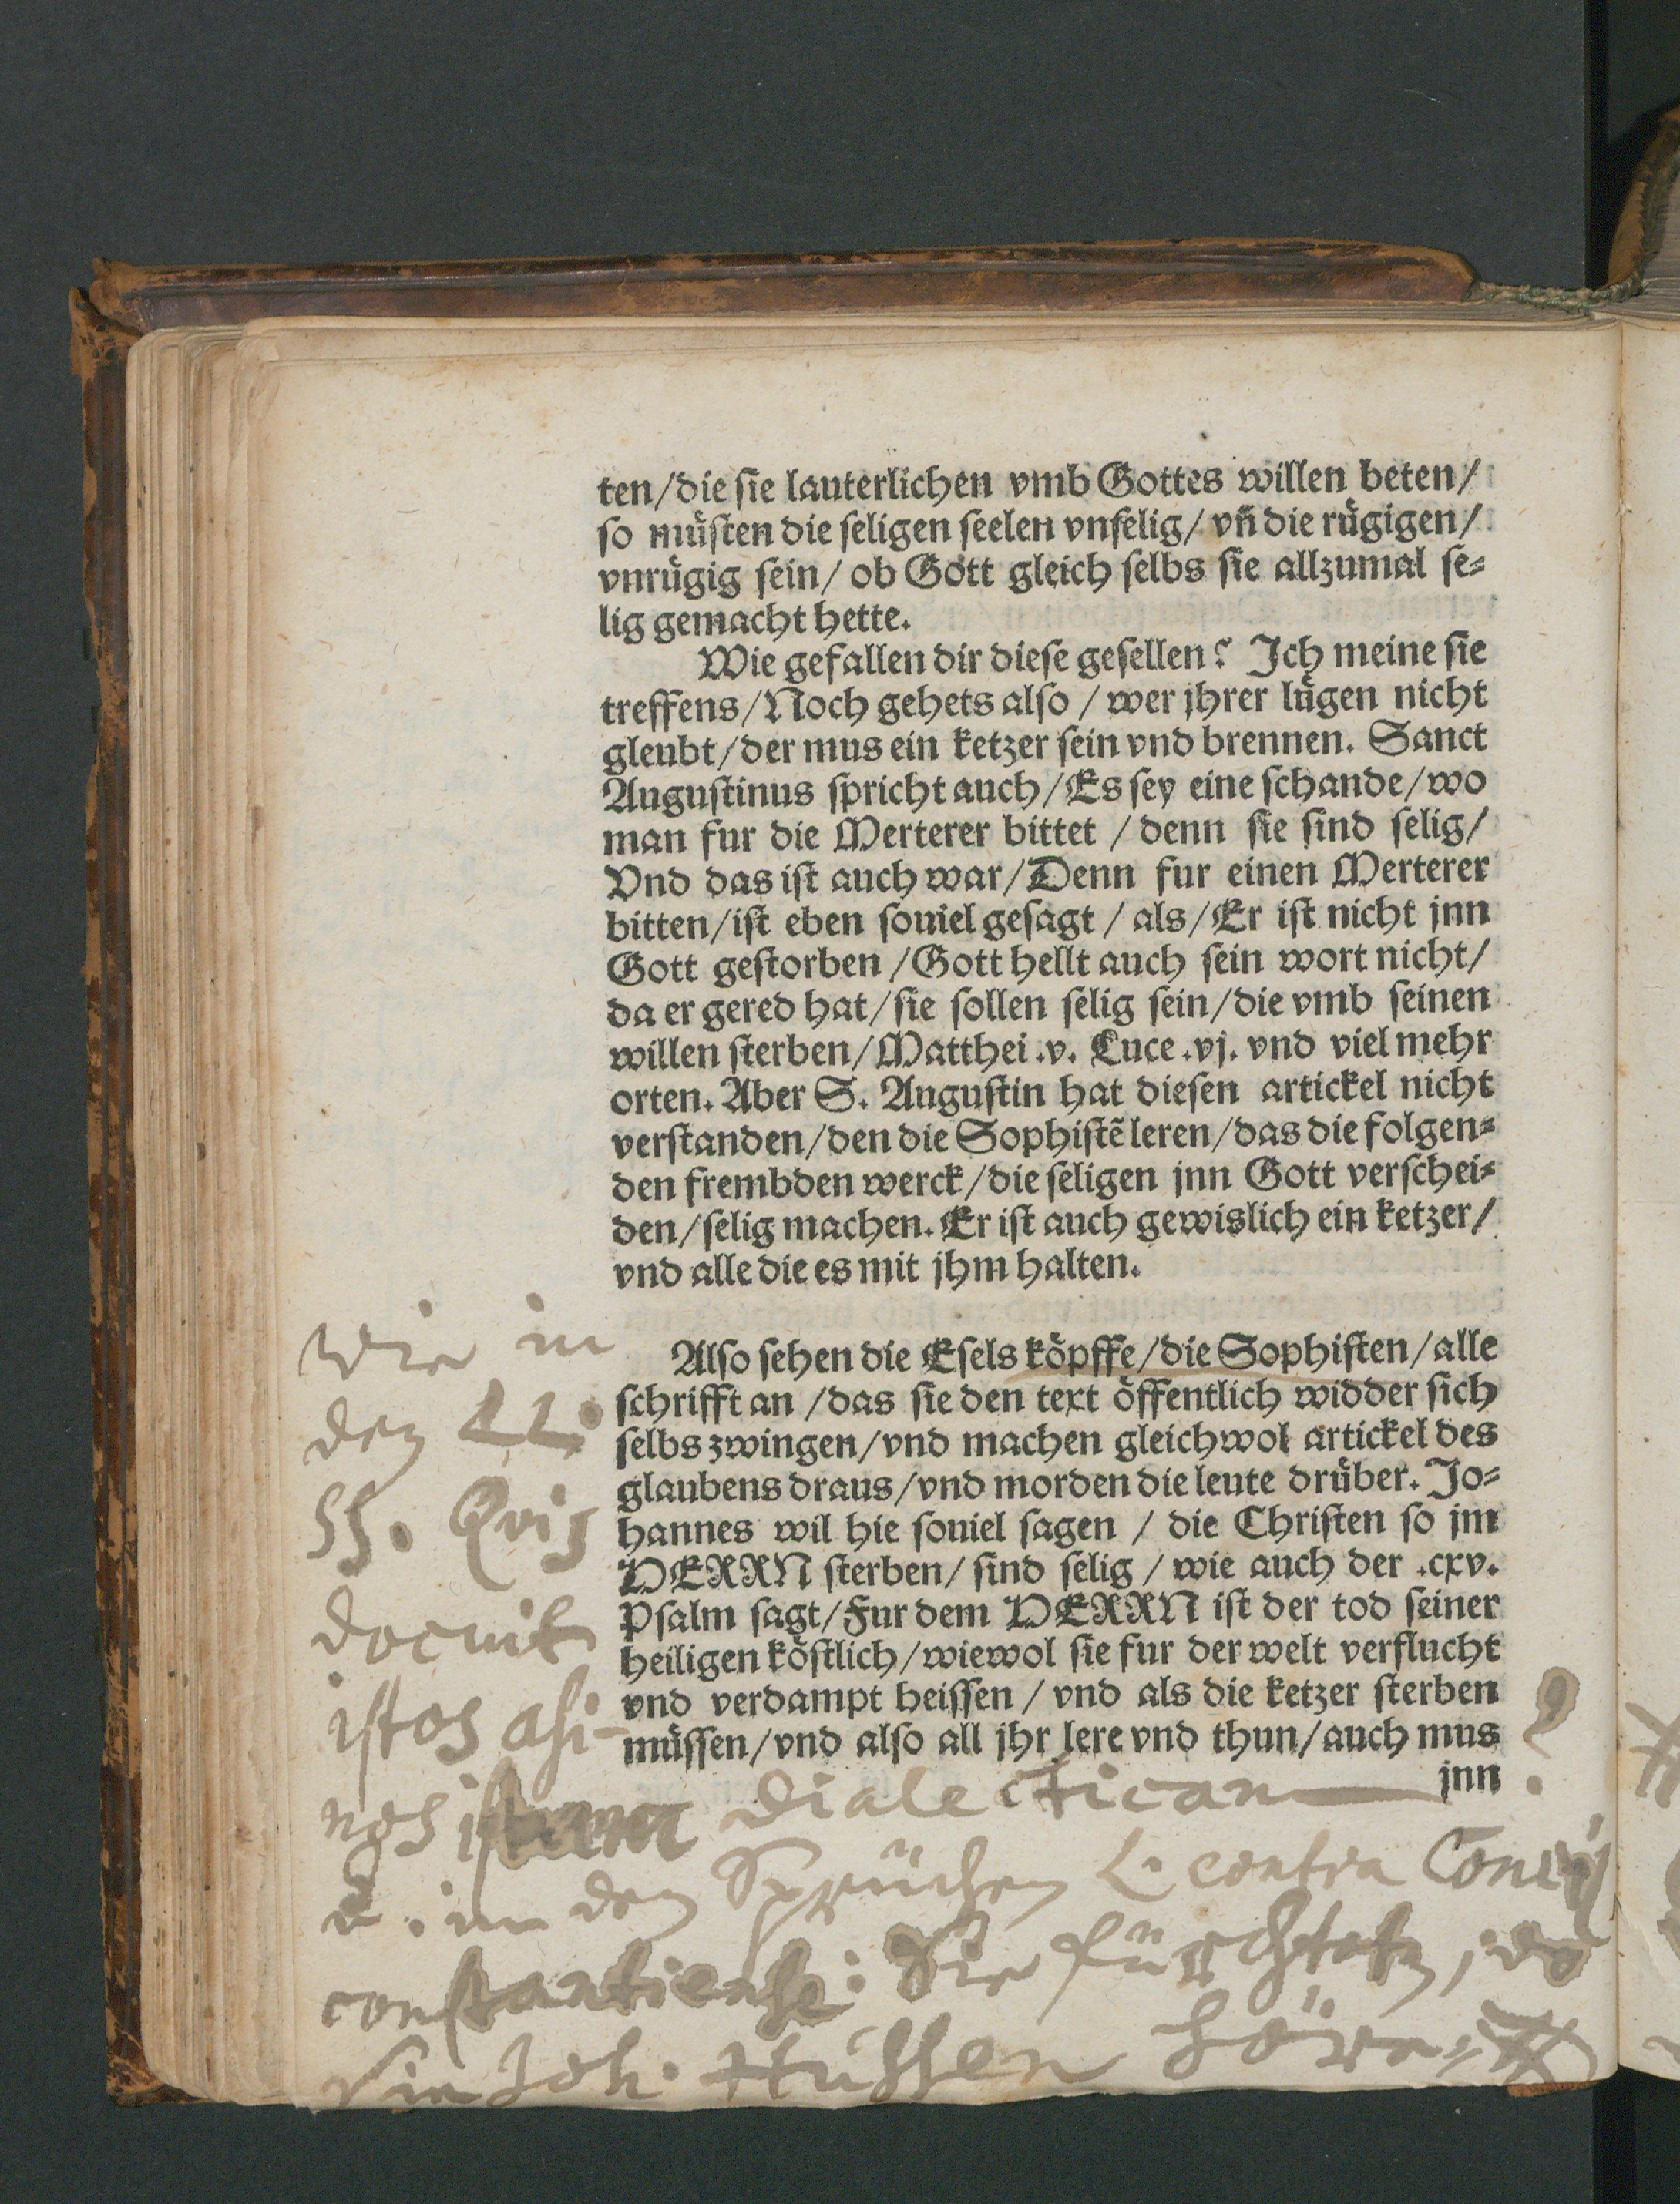 ten/die sie lauterlichen vmb Gottes willen beten/
so muͤsten die seligen seelen vnselig/ vñ die ruͤgigen/
vnruͤgig sein/ ob Gott gleich selbs sie allzumal se⸗
lig gemacht hette.
Wie gefallen dir diese gesellen? Ich meine sie
treffens/Noch gehets also / wer jhrer luͤgen nicht
gleubt/der mus ein ketzer sein vnd brennen. Sanct
Augustinus spricht auch/Es sey eine schande/wo
man fur die Merterer bittet / denn sie sind selig/
Vnd das ist auch war/Denn fur einen Merterer
bitten/ist eben souiel gesagt / als/Er ist nicht jnn
Gott gestorben /Gott hellt auch sein wort nicht/
da er gered hat/sie sollen selig sein/die vmb seinen
willen sterben/Matthei .v. Luce .vj. vnd viel mehr
orten. Aber S. Augustin hat diesen artickel nicht
verstanden/den die Sophistẽ leren/das die folgen⸗
den frembden werck/die seligen jnn Gott verschei⸗
den/selig machen. Er ist auch gewislich ein ketzer/
vnd alle die es mit jhm halten.
Also sehen die Esels koͤpffe/die Sophisten/alle
schrifft an /das sie den text oͤffentlich widder sich
selbs zwingen/vnd machen gleichwol artickel des
glaubens draus/vnd morden die leute druͤber. Jo⸗
hannes wil hie souiel sagen / die Christen so jm
HERRN sterben/ sind selig / wie auch der .cxv.
Psalm sagt/Fur dem HERRN ist der tod seiner
heiligen koͤstlich/wiewol sie fur der welt verflucht
vnd verdampt heissen / vnd als die ketzer sterben
muͤssen/vnd also all jhr lere vnd thun/auch mus
jnn
Wie in
den LL.
SS. Qvis
docuit
istos asi-
nos istam Dialecticam ?
u. in den Sprüchen L. contra Conc
constantiense: Sie fürchten, da
sie Joh. Hussen